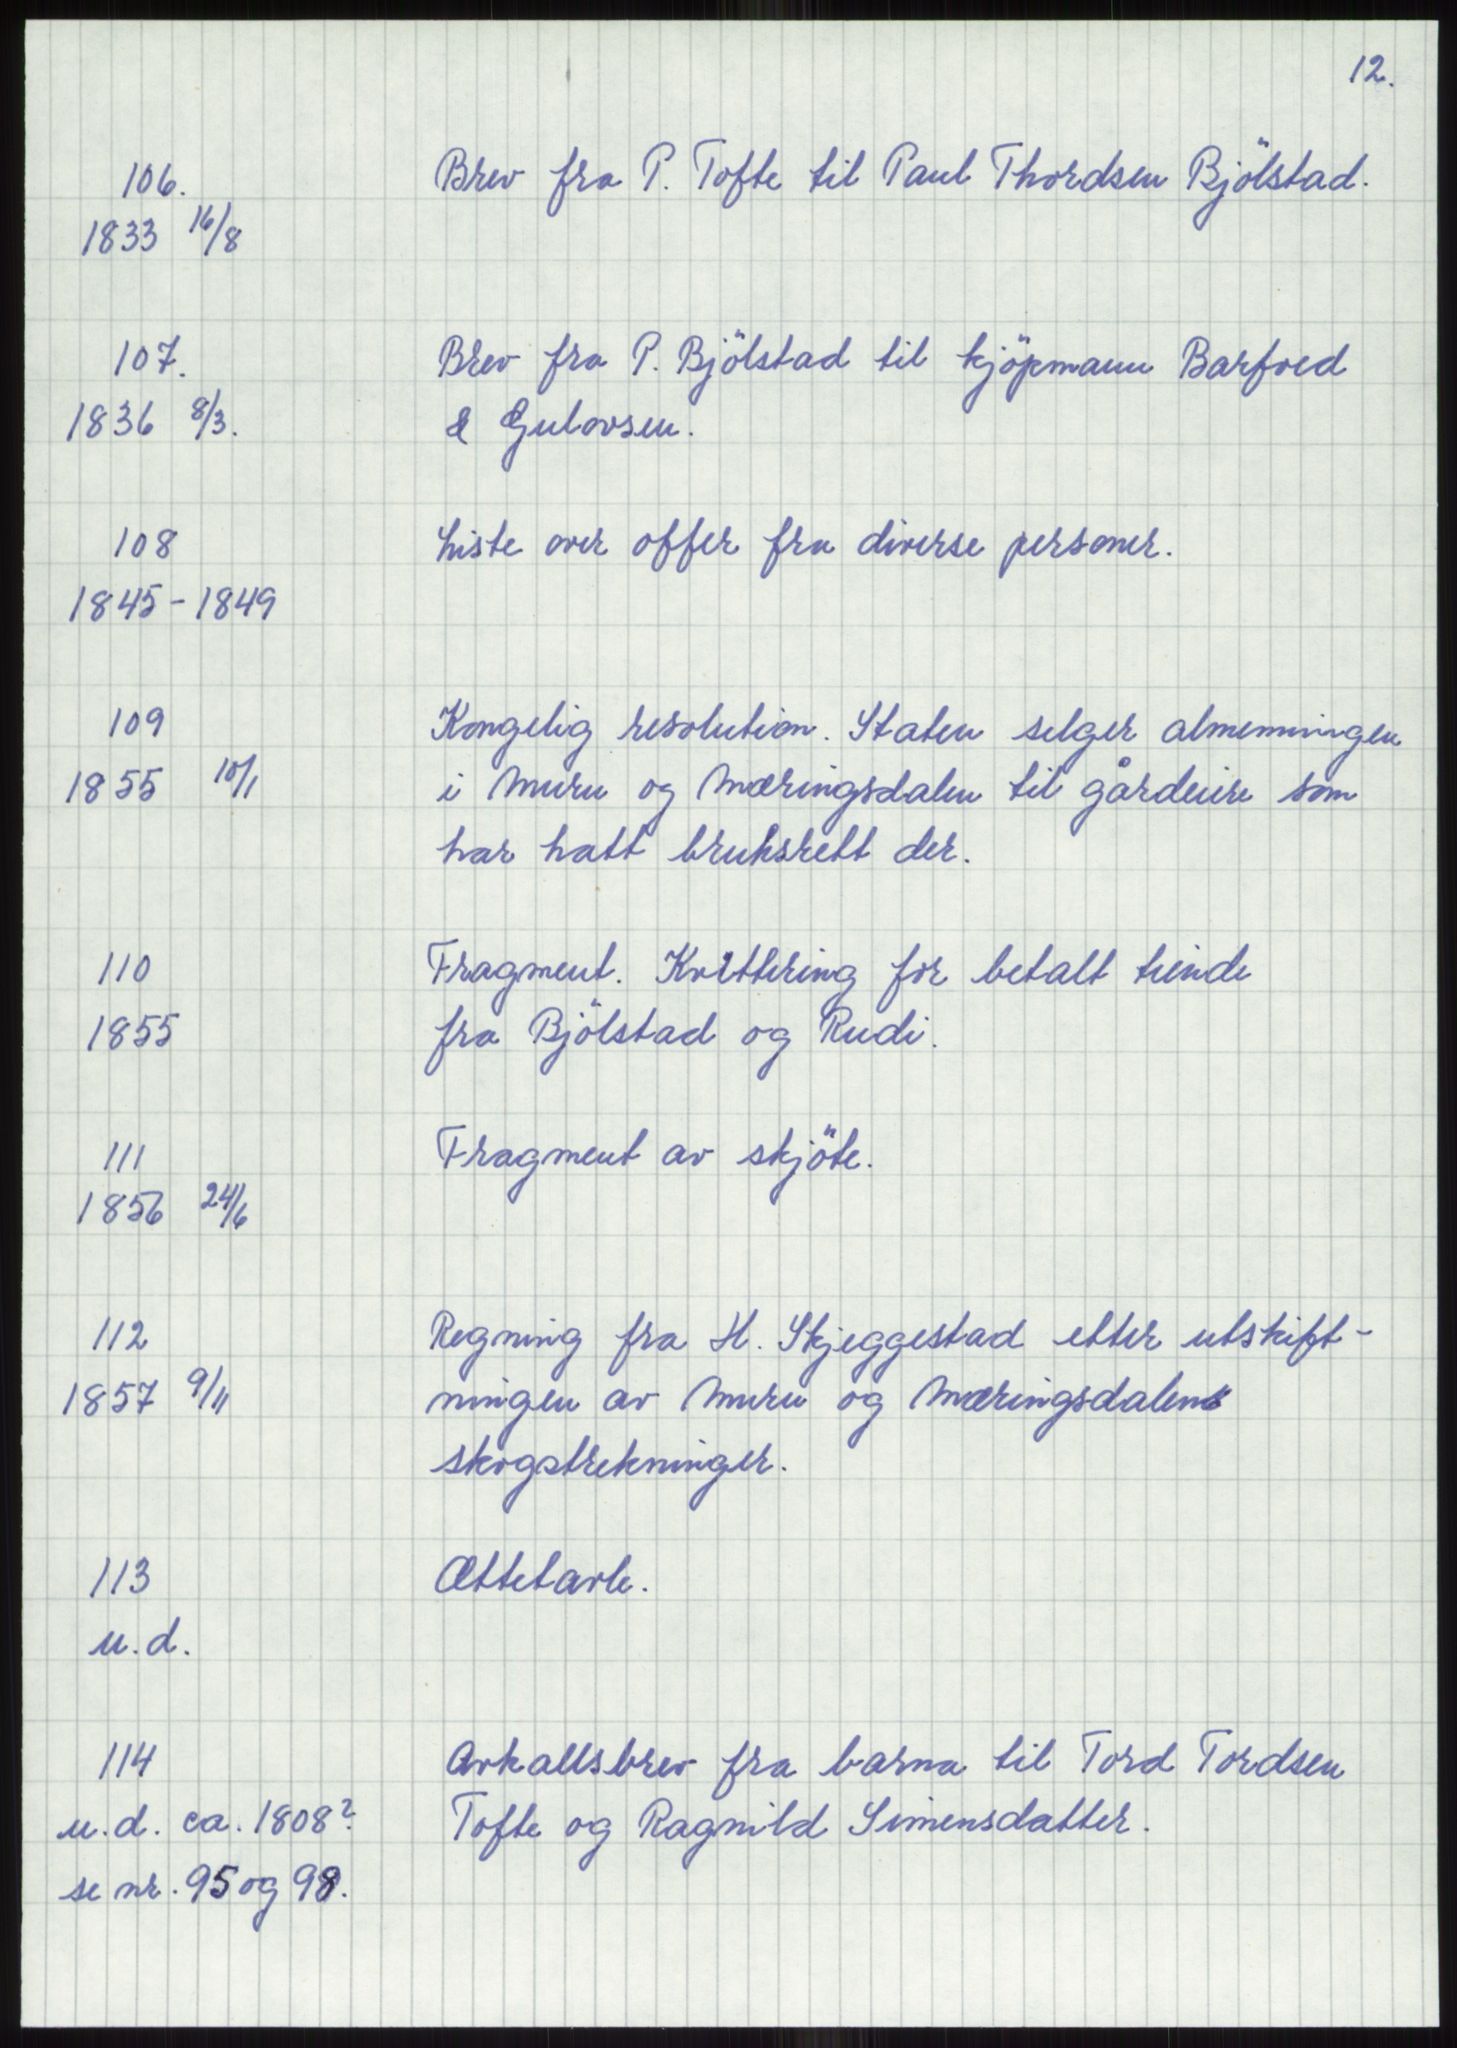 12.
106. Brev fra P. Tofte til Paul Thordsen Bjölstad.
1833 16/8
107. Brev fra P. Bjölstad til kjöpmann Barfoed
1836 8/3. & Gulovsen.
108 Liste over offer fra diverse personer.
1845-1849
109 Kongelig resolution. Staten selger almenningen
1855 10/1 i Muru og Mæringsdalen til gårdeiere som
har hatt bruksrett der.
110 Fragment. Kvittering for betalt tiende
1855 fra Bjölstad og Rudi.
111 Fragment av skjöte.
1856 24/6
112 Regning fra H. Skjeggestad etter utskift-
1857 9/11 ningen av Muru og Mæringsdalens
skogstrekninger.
113 Ættetavle.
u.d.
114 Avkallsbrev fra barna til Tord Tordsen
u.d. ca. 1808? Tofte og Ragnild Simensdatter.
se nr. 95 og 98.